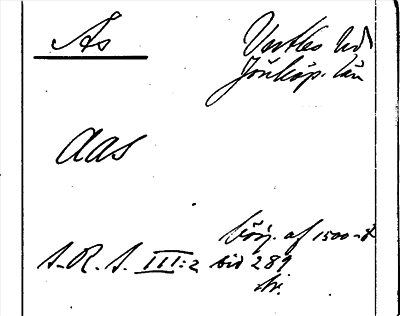 Ås Vartbo hd
Jönköp. län
Aas
börj. af 1500-t
S.R.S. III:2 sid 289